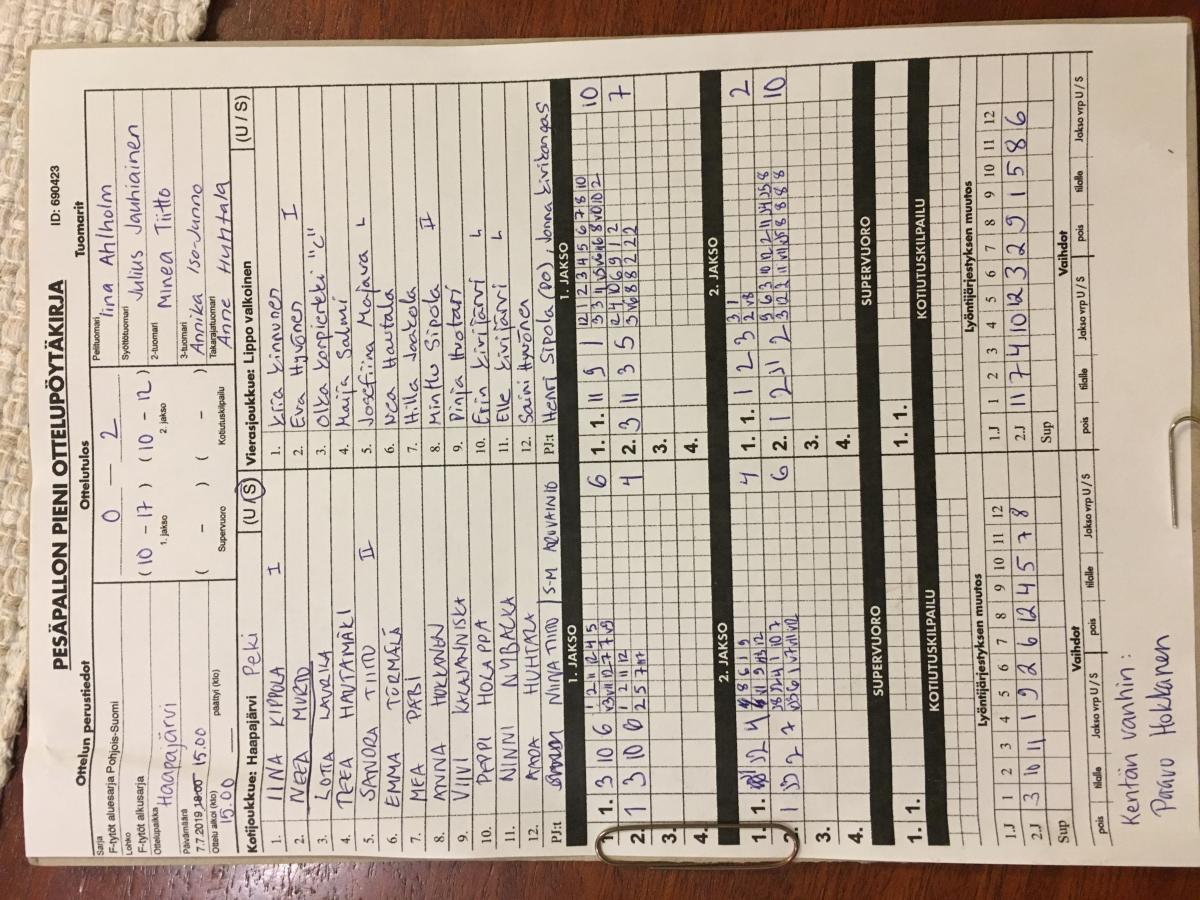 PESÄPALLON PIENI OTTELUPÖYTÄKIRJA
ID: 690423
Ottelun perustiedot
Ottelutulos
Tuomarit
Sarja
F-tytöt aluesarja Pohjois-Suomi
Lohko
F-tytöt alkusarja
Ottelupaikka
Haapajärvi
Päivämäärä
7.7.2019 18:00 15.00
Ottelu alkoi (klo)
15.00
päättyi (klo)
0 — 2
(10 - 17) (10 - 12)
1. jakso
2. jakso
( - ) ( - )
Supervuoro
Kotiutuskilpailu
Pelituomari
Iina Ahlholm
Syöttötuomari
Julius Jauhiainen
2-tuomari
Minea Tiitto
3-tuomari
Annika Iso-Junno
Takarajatuomari
Anne Huhtala
Kotijoukkue: Haapajärvi Peki
(U / S)
1. IINA KIPPOLA I
2. NEEA MURTO
3. LOTTA LAURILA
4. TEEA HAUTAMÄKI
5. SANDRA TIITTO II
6. EMMA TÖRMÄLÄ
7. MEA PARI
8. ANNA HOKKANEN
9. VIIVI KALAJANNISKA
10. PEPPI HOLAPPA
11. NINNI NYBACKA
12. AADA HUHTALA
PJ:t NIINA TIITTO S-M ARVAINIO
Vierasjoukkue: Lippo valkoinen
(U / S)
1. Kiia Kinnunen
2. Eva Hyvönen I
3. Olka Konpierteki "C"
4. Maija Salmi
5. Josefiina Mojava L
6. Nea Hautala
7. Hilla Jaakola
8. Minttu Sipola II
9. Pinja Huotari
10. Erin Kivijärvi L
11. Elle Kivijärvi L
12. Saini Hyvönen
PJ:t Henri Sipola (PO), Jonna Kivikangas
1. JAKSO
1. JAKSO
1. 1. 3 10 6
6
1. 1. 11 9 1
12 1 2 3 4 5 6 7 8 10
10
2. 1 3 10 6
1 2 11 12
4
2. 3 11 3 5
2 4 10 6 9 1 2
7
3.
3.
4.
4.
2. JAKSO
2. JAKSO
1. 1.
4
1. 1. 1 2 3
2
2.
6
2.
10
3.
3.
4.
4.
SUPERVUORO
SUPERVUORO
1. 1.
1. 1.
KOTIUTUSKILPAILU
KOTIUTUSKILPAILU
Lyöntijärjestyksen muutos
Lyöntijärjestyksen muutos
1.J 1 2 3 4 5 6 7 8 9 10 11 12
1.J 1 2 3 4 5 6 7 8 9 10 11 12
2.J 3 10 11 1 9 2 6 12 4 5 7 8
2.J 11 7 4 10 12 3 2 9 1 5 8 6
Sup
Sup
Vaihdot
Vaihdot
pois tilalle Jakso vrp U / S pois tilalle Jakso vrp U / S
pois tilalle Jakso vrp U / S pois tilalle Jakso vrp U / S
Kentän vanhin:
Paavo Hokkanen